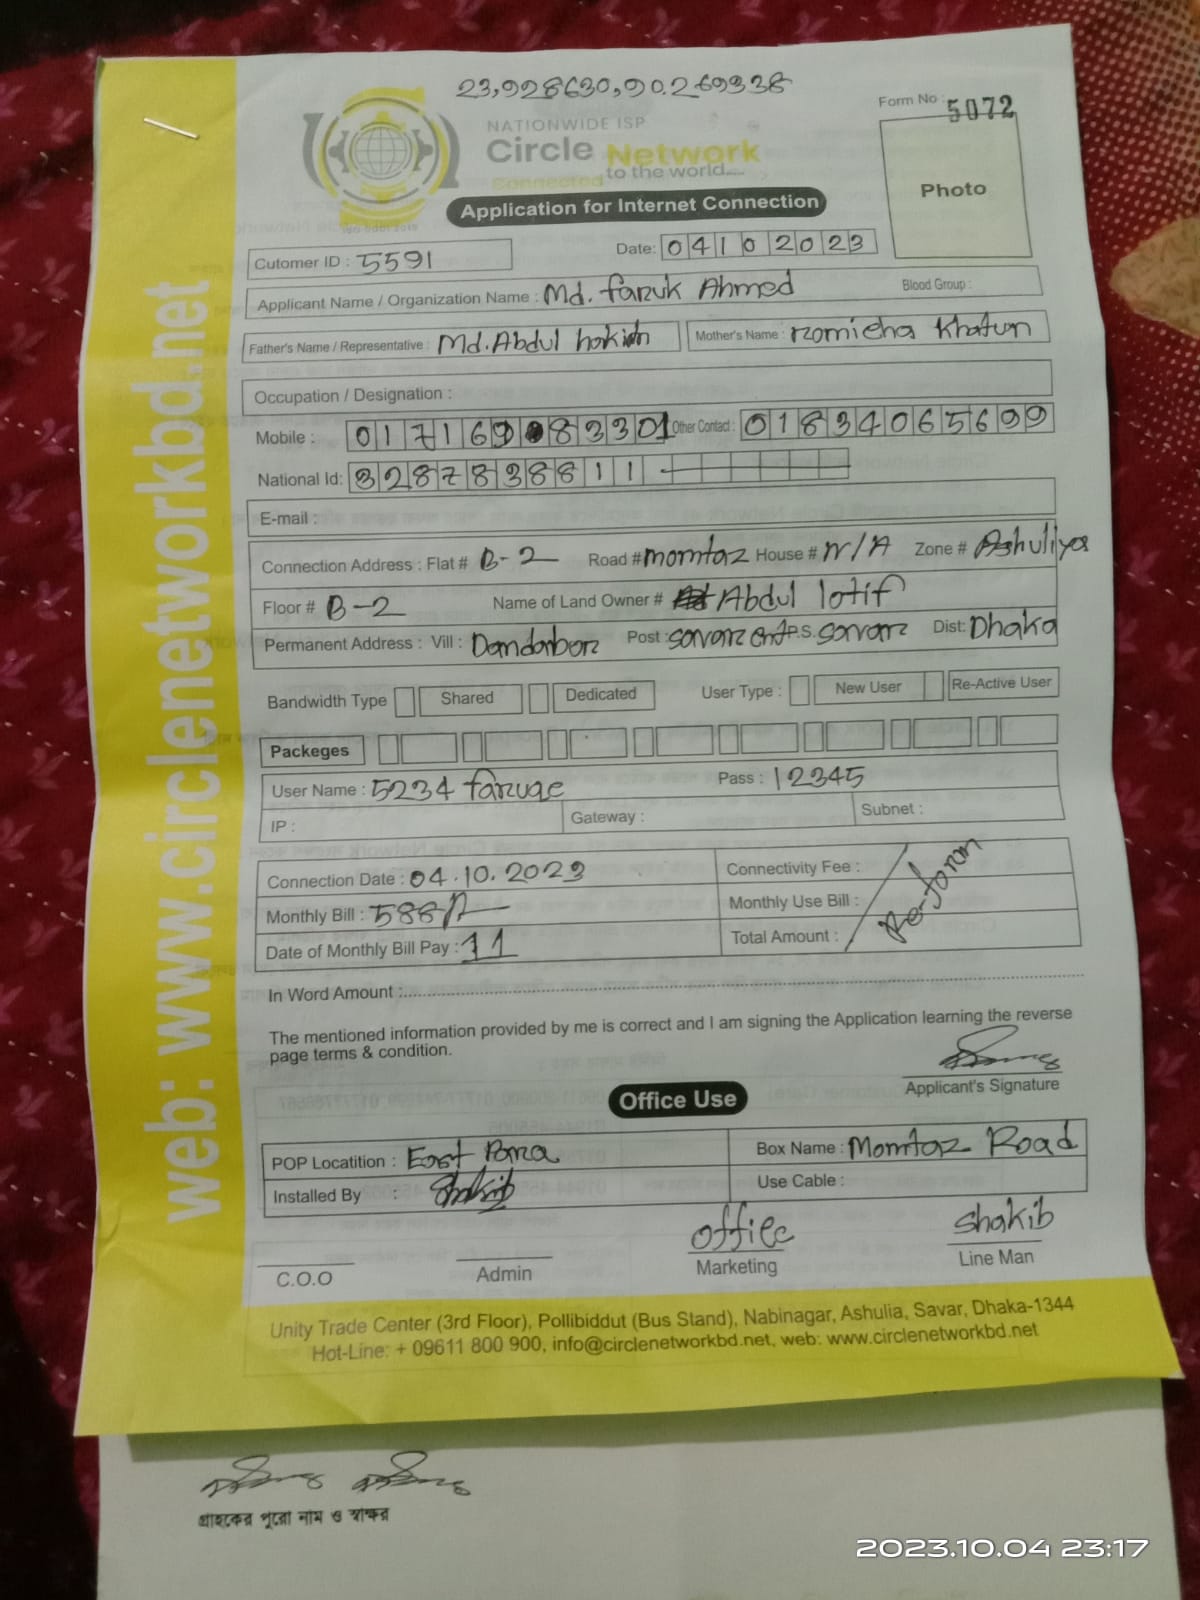 23,928630,90.269338
Form No : 5072
NATIONWIDE ISP
Circle Network
Connected to the world....
Photo
Application for Internet Connection
Cutomer ID : 5591
Date: 04102023
Applicant Name / Organization Name : Md. faruk Ahmed Blood Group :
Father's Name / Representative : Md. Abdul hakim Mother's Name : romicha Khatun
Occupation / Designation :
Mobile : 01716983301 Other Contact : 01834065699
National Id: 3287838811
E-mail :
Connection Address : Flat # B-2 Road # momtaz House # N/A Zone # Ashuliya
Floor # B-2 Name of Land Owner # Abdul lotif
Permanent Address : Vill : Dandabor Post : savar cant P.S. savar Dist: Dhaka
Bandwidth Type Shared Dedicated User Type : New User Re-Active User
Packeges
User Name : 5234 faruqe Pass : 12345
IP : Gateway : Subnet :
Connection Date : 04.10.2023 Connectivity Fee :
Monthly Bill : 588/- Monthly Use Bill : Re-foram
Date of Monthly Bill Pay : 11 Total Amount :
In Word Amount :
The mentioned information provided by me is correct and I am signing the Application learning the reverse
page terms & condition.
Applicant's Signature
Office Use
POP Locatition : East Para Box Name : Momtaz Road
Installed By : Shakib Use Cable :
office Shakib
C.O.O Admin Marketing Line Man
Unity Trade Center (3rd Floor), Pollibiddut (Bus Stand), Nabinagar, Ashulia, Savar, Dhaka-1344
Hot-Line: + 09611 800 900, info@circlenetworkbd.net, web: www.circlenetworkbd.net
web: www.circlenetworkbd.net
গ্রাহকের পুরো নাম ও স্বাক্ষর
2023.10.04 23:17